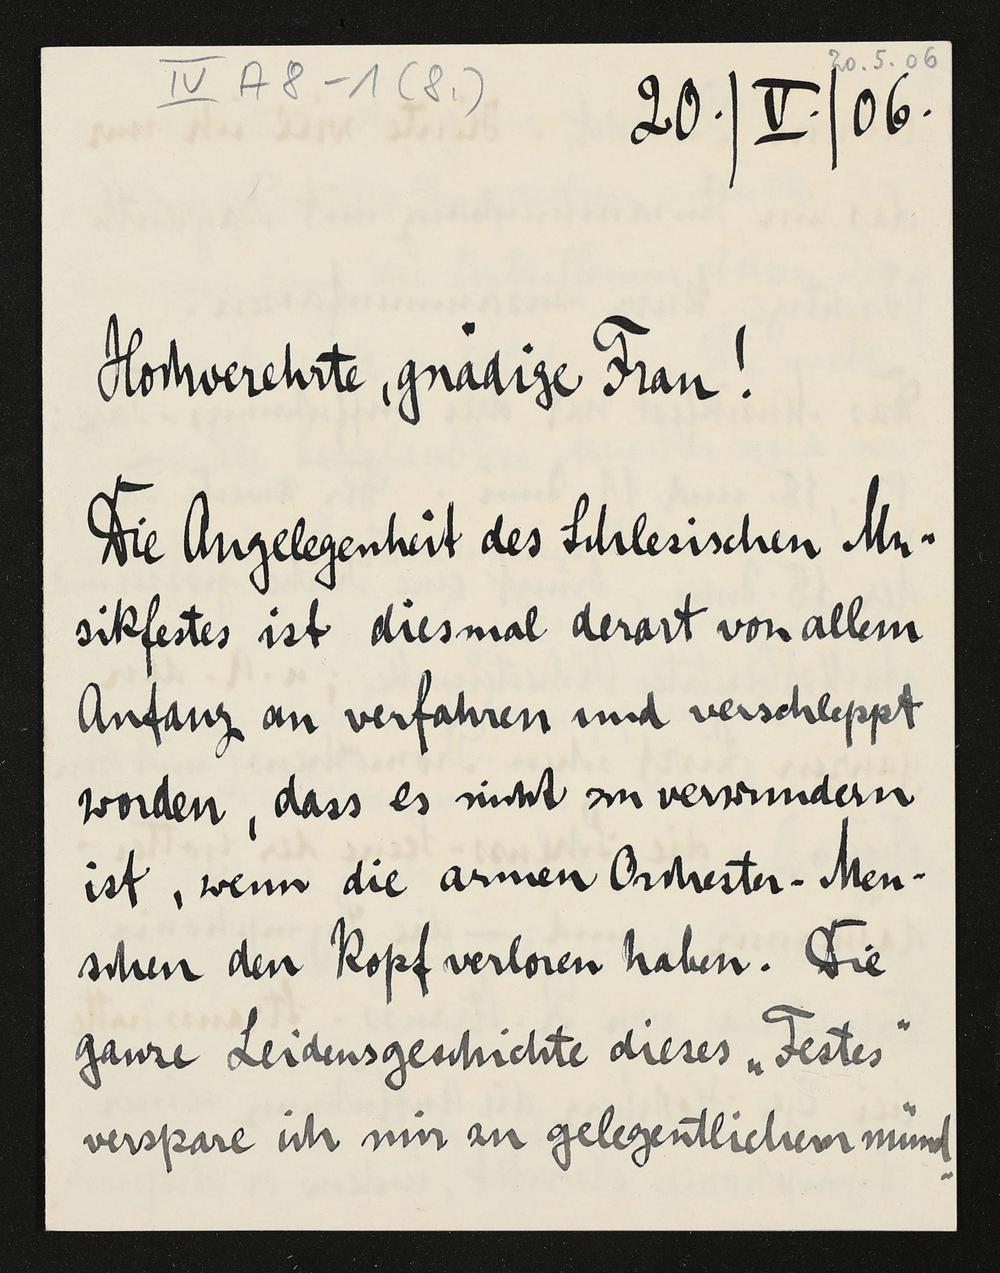 IV A 8 - 1 (8.)
20.5.06
20.|V.|06.
Hochverehrte, gnädige Frau!
Die Angelegenheit des Schlesischen Mu-
sikfestes ist diesmal derart von allem
Anfang an verfahren und verschleppt
worden, dass es nicht zu verwundern
ist, wenn die armen Orchester-Men-
schen den Kopf verloren haben. Die
ganze Leidensgeschichte dieses „Festes"
verspare ich mir zu gelegentlichem münd-